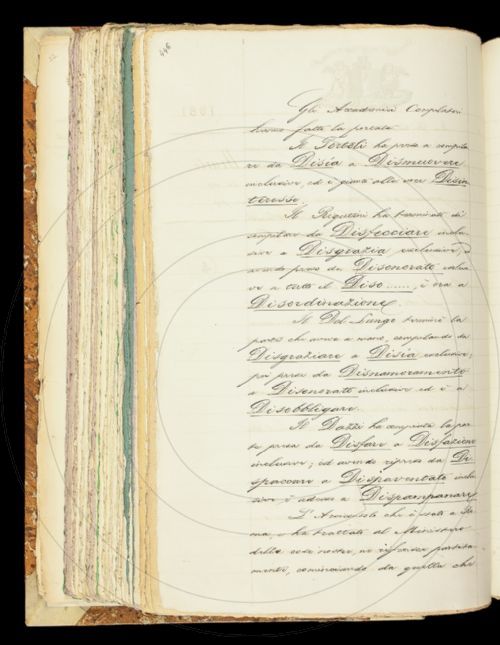 446
Gli Accademici Compilatori
hanno fatto la
Il Tortoli ha preso a compila
re da Disia a Dismuovere
inclusive, ed è giunto alla voce Disin
teresse.
Il Rigutini ha terminato di
compilare da Disfecciare inclu
sive a Disgrazia esclusive, e
avendo preso da Disonorato inclusi
ve a tutto il Diso......, è ora a
Disordinazione.
Il Del-Lungo terminò la
parte che aveva a mano, compilando da
Disgraziare a Disia esclusive;
poi prese da Disnamoramento
a Disonorato inclusive ed è a
Disobbligare.
Il Dazzi ha compiuta la par
te presa da Disfare a Disfazione
inclusive; ed avendo ripreso da Di
spaccare a Dispaventato inclu
sive è adesso a Dispampanare
L'Arciconsolo che è stato a Ro
ma, e ha trattato al Ministero
delle cose nostre, ne informa partita
mente, cominciando da quella che